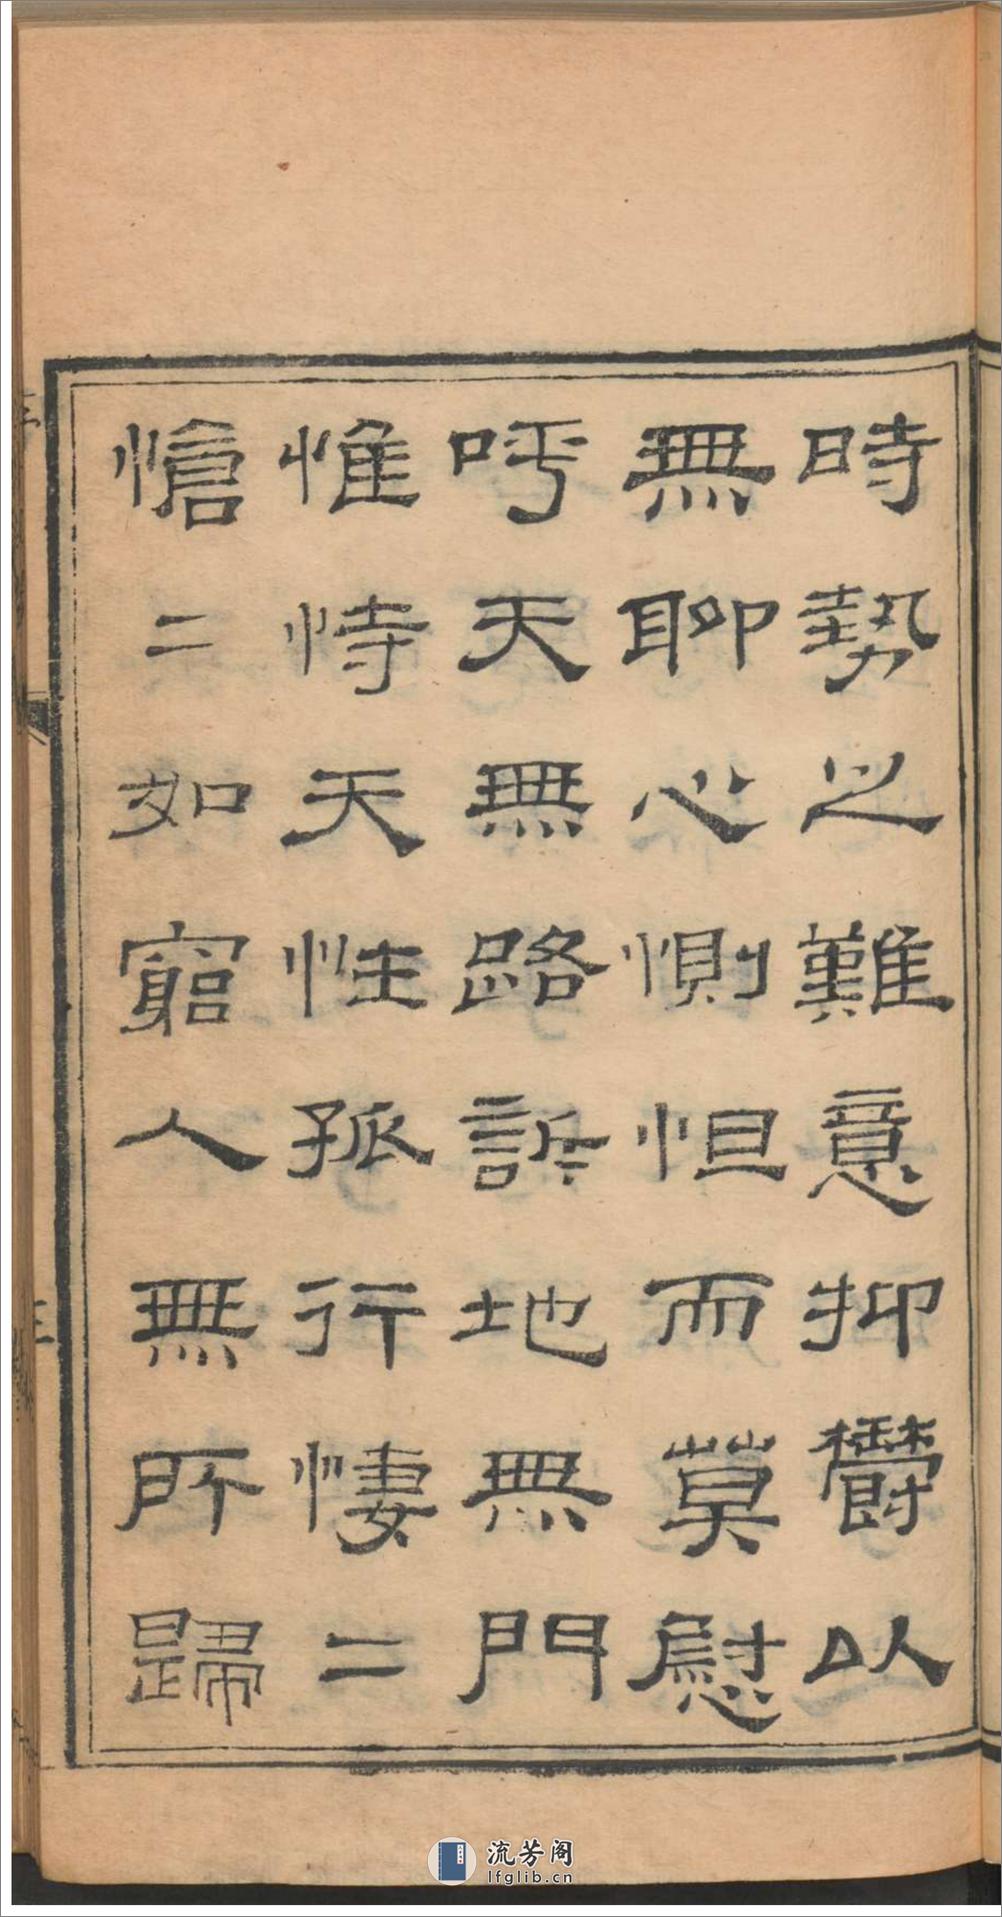 時勢之難意抑鬱以
無聊心惻怛而莫慰
呼天無路訴地無門
惟恃天性孤行悽二
愴二如窮人無所歸
流芳阁
lfglib.cn